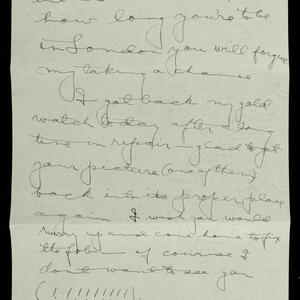 how long you're to be
in London you will forgive
my taking a chance.
I got back my gold
watch today after a long
time in repair – glad to get
your picture (one of them)
back into its proper place
again I wish you would
hurry up and come home to fix
the fob – of course I
don't want to see you
(!!!!!!!!!!)